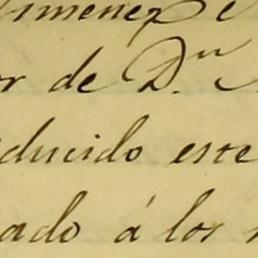 Jimenez
or de D.n
ducido este
ado á los